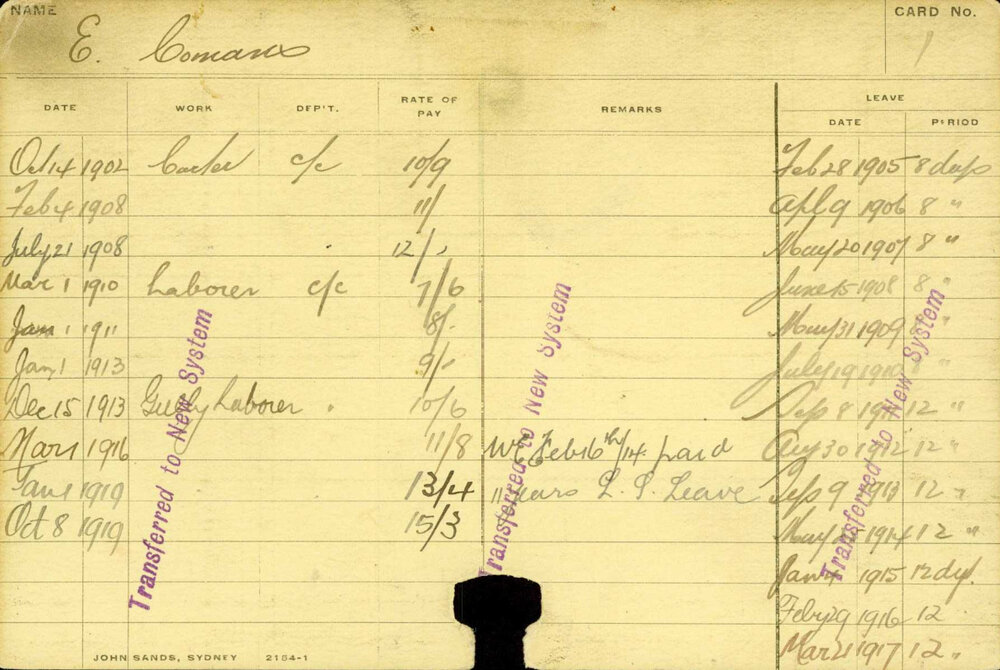 NAME E. CARD No. 1
LEAVE
DATE WORK DEP'T. RATE OF PAY REMARKS DATE PERIOD
Oct 14 1902 Carter c/c 10/9 Feb 28 1905 8 days
Feb 4 1908 11/ Apl 9 1906 8 "
July 21 1908 12/- May 20 1907 8 "
Mar 1 1910 Laborer c/c 7/6 June 15 1908 8 "
Jan 1 1911 8/- May 31 1909 "
Jan 1 1913 9/- July 19 1910 "
Dec 15 1913 Gully Laborer " 10/6 Sep 8 12 "
Mar 1 1916 11/8 WE Feb 16th/14 paid Aug 30 1912 12 "
Jan 1 1919 13/4 years L. S. Leave Sep 9 1913 12 "
Oct 8 1919 15/3 May 1914 12 "
Jan 1915 12 dys.
Feby 29 1916 12
Mar 21 1917 12 "
Transferred to New System
Transferred to New System
Transferred to New System
JOHN SANDS, SYDNEY 2154-1